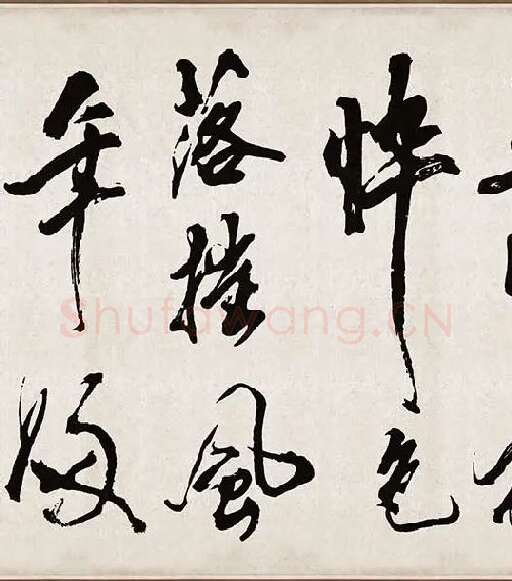 悴色
落摧風
年
Shufawang.CN